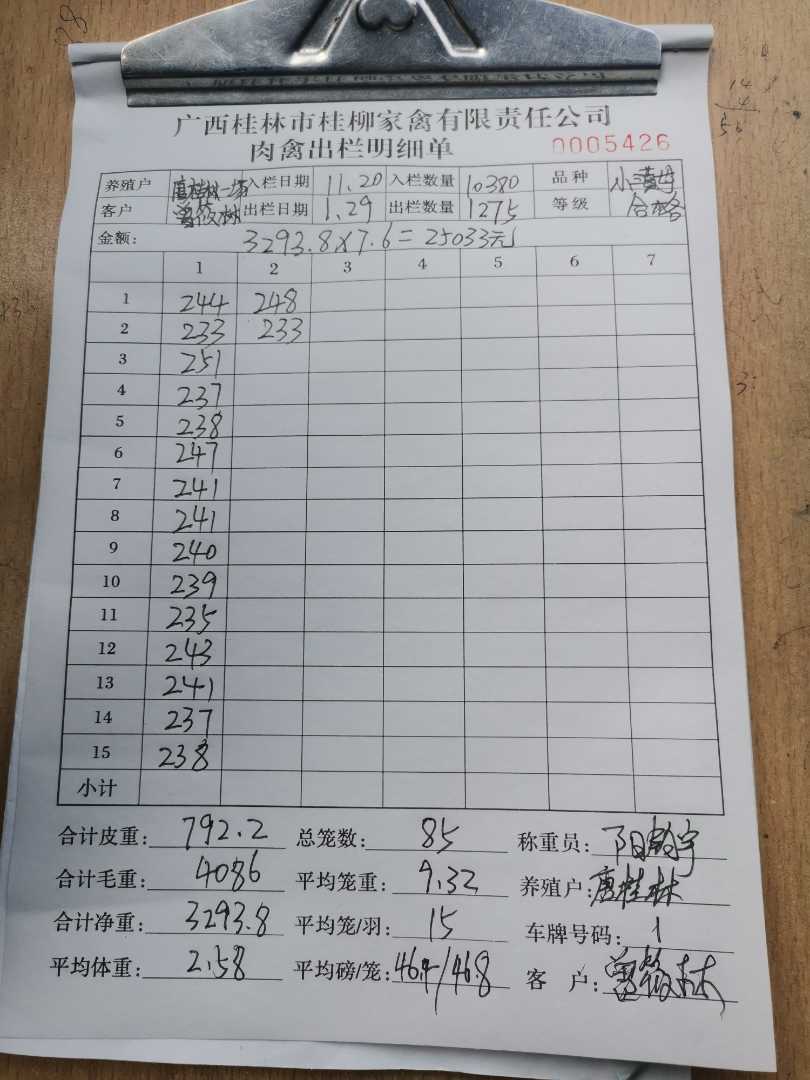 广西桂林市桂柳家禽有限责任公司
肉禽出栏明细单 0005426
养殖户 唐桂林一场 入栏日期 11.20 入栏数量 10380 品种 小黄母
客户 曾筱林 出栏日期 1.29 出栏数量 1275 等级 合格
金额: 3293.8×7.6=25033元
1 2 3 4 5 6 7
1 244 248
2 233 233
3 251
4 237
5 238
6 247
7 241
8 241
9 240
10 239
11 235
12 243
13 241
14 237
15 238
小计
合计皮重: 792.2 总笼数: 85 称重员:
合计毛重: 4086 平均笼重: 9.32 养殖户: 唐桂林
合计净重: 3293.8 平均笼/羽: 15 车牌号码: 1
平均体重: 2.58 平均磅/笼: 46.4/46.8 客户: 曾筱林
14
4
56